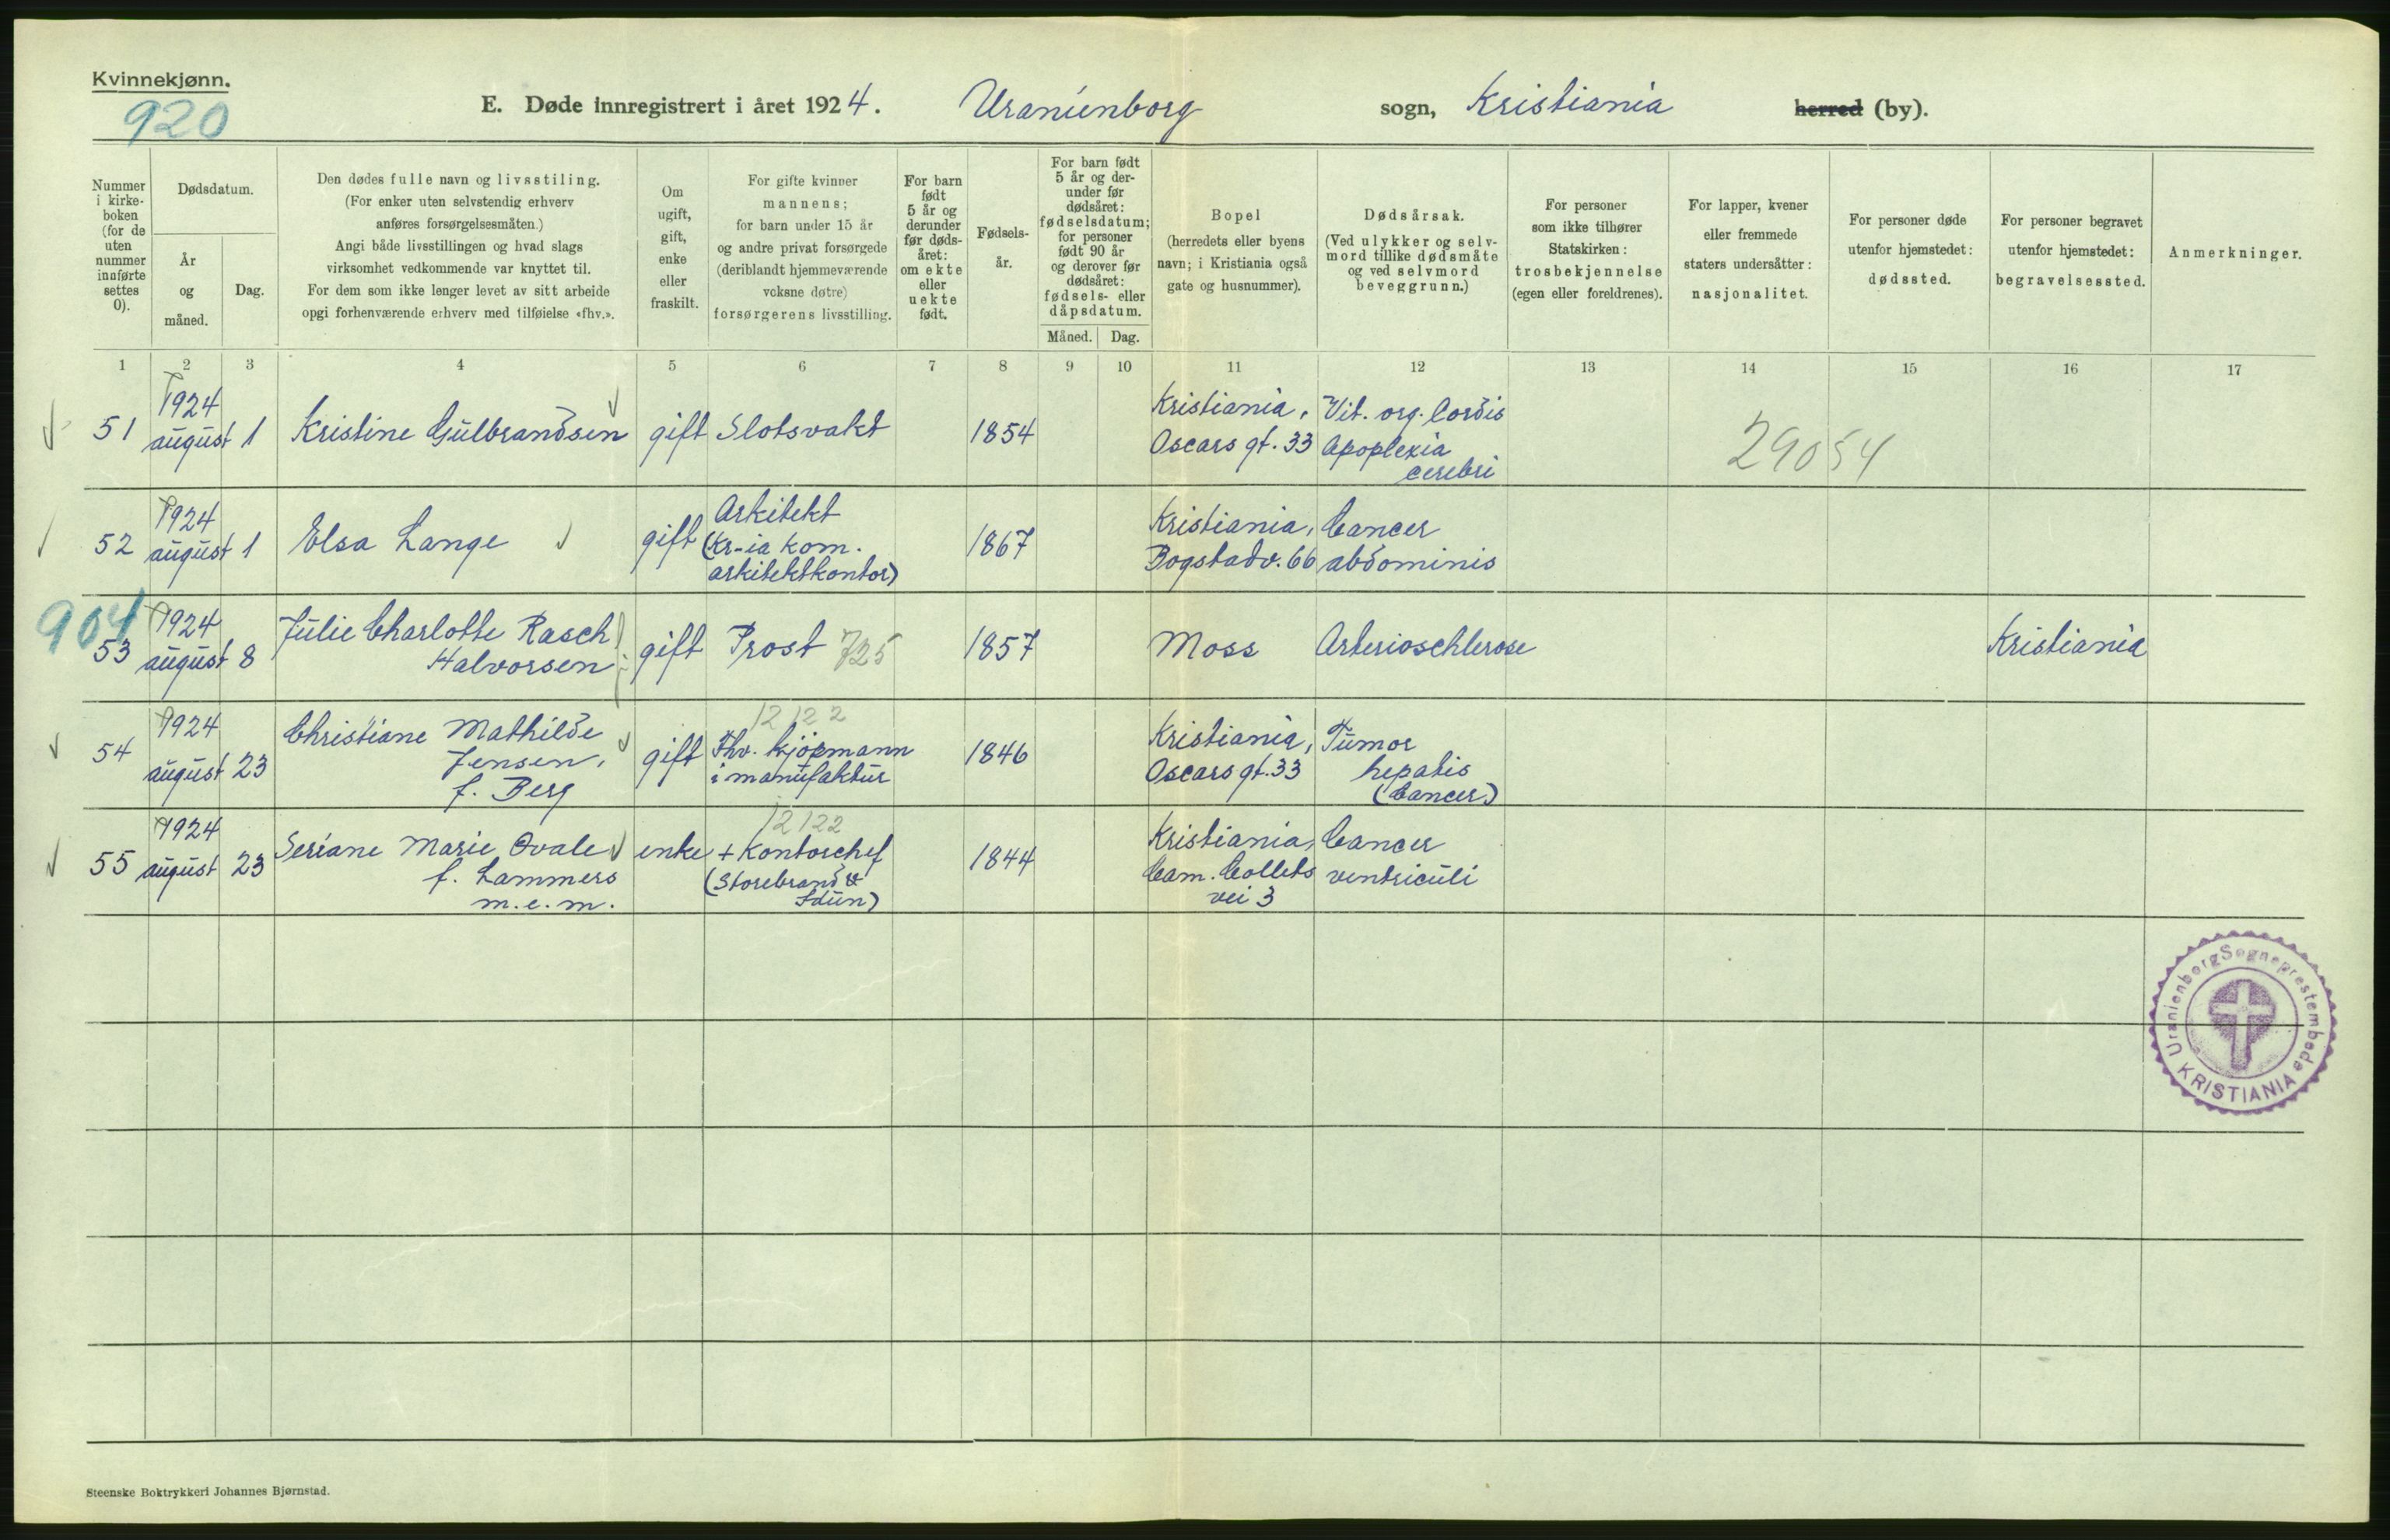 Kvinnekjønn.
920
E. Døde innregistrert i året 1924. Uranienborg sogn, Kristiania herred (by).
Nummer i kirkeboken (for de uten nummer innførte settes 0).
Dødsdatum.
År og måned.
Dag.
Den dødes fulle navn og livsstiling.
(For enker uten selvstendig erhverv
anføres forsørgelsesmåten.)
Angi både livsstillingen og hvad slags
virksomhet vedkommende var knyttet til.
For dem som ikke lenger levet av sitt arbeide
opgi forhenværende erhverv med tilføielse «fhv.».
Om ugift, gift, enke eller fraskilt.
For gifte kvinner
mannens;
for barn under 15 år
og andre privat forsørgede
(deriblandt hjemmeværende
voksne døtre)
forsørgerens livsstilling.
For barn født 5 år og derunder før dødsåret: om ekte eller uekte født.
Fødselsår.
For barn født 5 år og derunder før dødsåret: fødselsdatum; for personer født 90 år og derover før dødsåret: fødsels- eller dåpsdatum.
Måned.
Dag.
Bopel
(herredets eller byens
navn; i Kristiania også
gate og husnummer).
Dødsårsak.
(Ved ulykker og selvmord tillike dødsmåte
og ved selvmord
beveggrunn.)
For personer
som ikke tilhører
Statskirken:
trosbekjennelse
(egen eller foreldrenes).
For lapper, kvener
eller fremmede
staters undersåtter:
nasjonalitet.
For personer døde
utenfor hjemstedet:
dødssted.
For personer begravet
utenfor hjemstedet:
begravelsessted.
Anmerkninger.
1 2 3 4 5 6 7 8 9 10 11 12 13 14 15 16 17
51
1924
august 1
Kristine Gulbrandsen
gift
Slotsvakt
1854
Kristiania,
Oscars gt. 33
Vit. org. Cordis
Apoplexia
cerebri
29054
52
1924
august 1
Elsa Lange
gift
Arkitekt
(Kr-ia kom.
arkitektkontor)
1867
Kristiania,
Bogstadv. 66
Cancer
abdominis
904
53
1924
august 8
Julie Charlotte Rasch
Halvorsen
gift
Prost 725
1857
Moss
Arterioschlerose
Kristiania
54
1924
august 23
Christiane Mathilde
Jensen,
f. Berg
gift
12122
Fhv. kjøpmann
i manufaktur
1846
Kristiania,
Oscars gt. 33
Tumor
hepatis
(Cancer)
55
1924
august 23
Seriane Marie Qvale
f. Lammers
m.e.m.
enke
12122
+ Kontorchef
(Storebrand &
Idun)
1844
Kristiania,
Cam. Colletts
vei 3
Cancer
ventriculi
Uranienborg Sogneprestembede
KRISTIANIA
Steenske Boktrykkeri Johannes Bjørnstad.